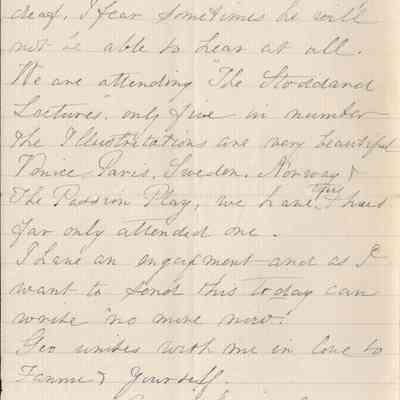 deaf, I fear sometimes he will
not be able to hear at all.
We are attending "The Stoddard
Lectures", only five in number
the Illustritations are very beautiful
Venice, Paris, Sweden, Norway &
The Passion Play, we have thus
far only attended one.
I have an engagement and as I
want to send this today can
write "no more now".
Geo unites with me in love to
Fannie & yourself.